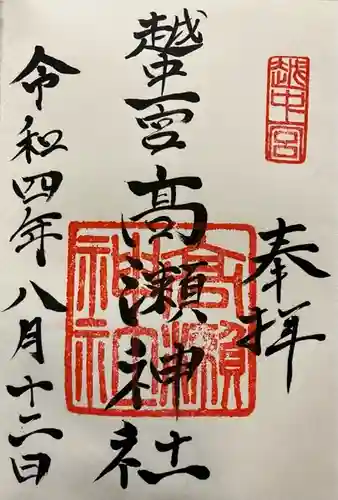 越中宮
奉拝
越中一宮高瀬神社
高瀬神社
令和四年八月十二日